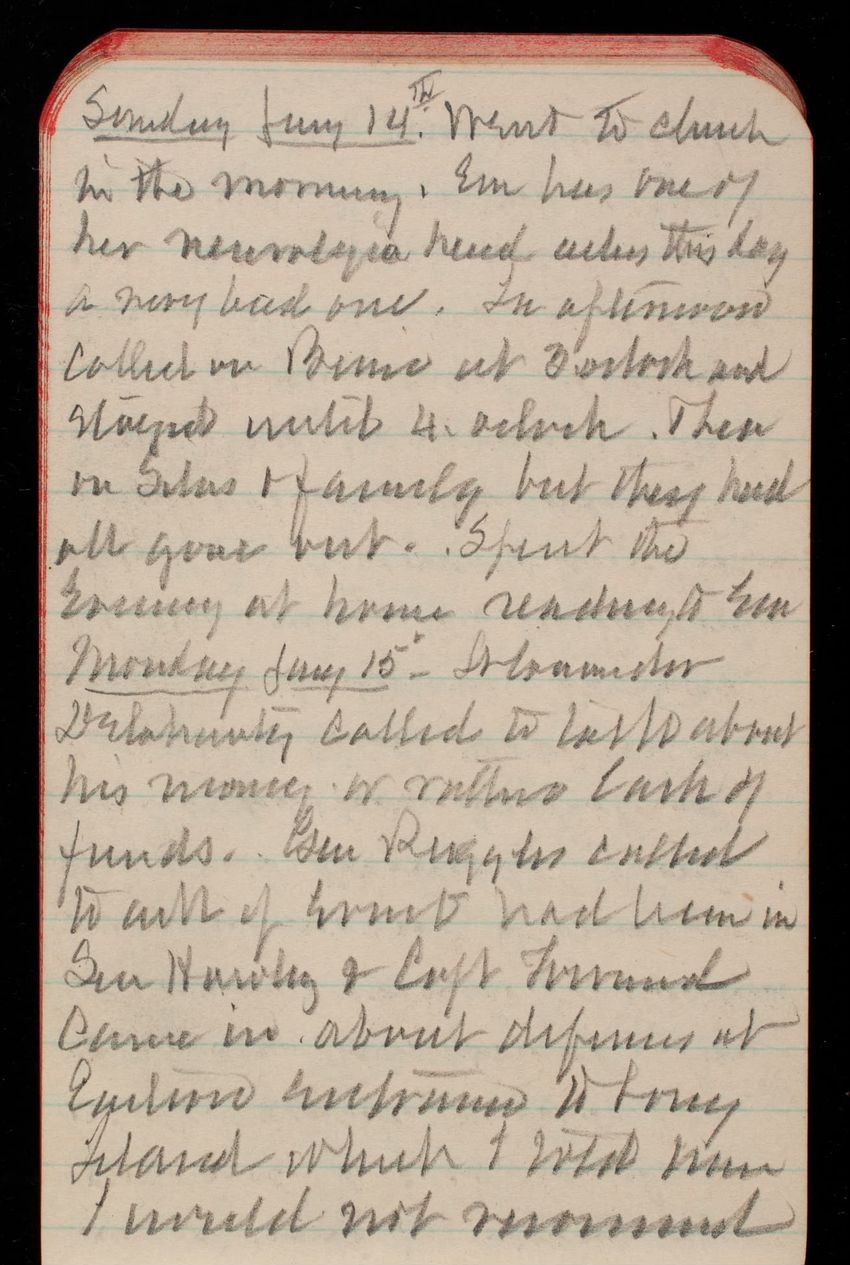 Sunday Jany 14th. Went to church
in the morning. Em has one of
her neuralgia head aches this day
a very bad one. In afternoon
called on Bernie at 3 oclock and
stayed until 4. oclock. Then
on Silas & family but they had
all gone out. Spent the
Evening at home reading to Em
Monday Jany 15 -
called to talk about
his money or rather lack of
funds. Gen Ruggles called
to ask if had been in
Gen Hawley & Capt
came in about defenses at
Eastern entrance to Long
Island which I told him
I would not recommend